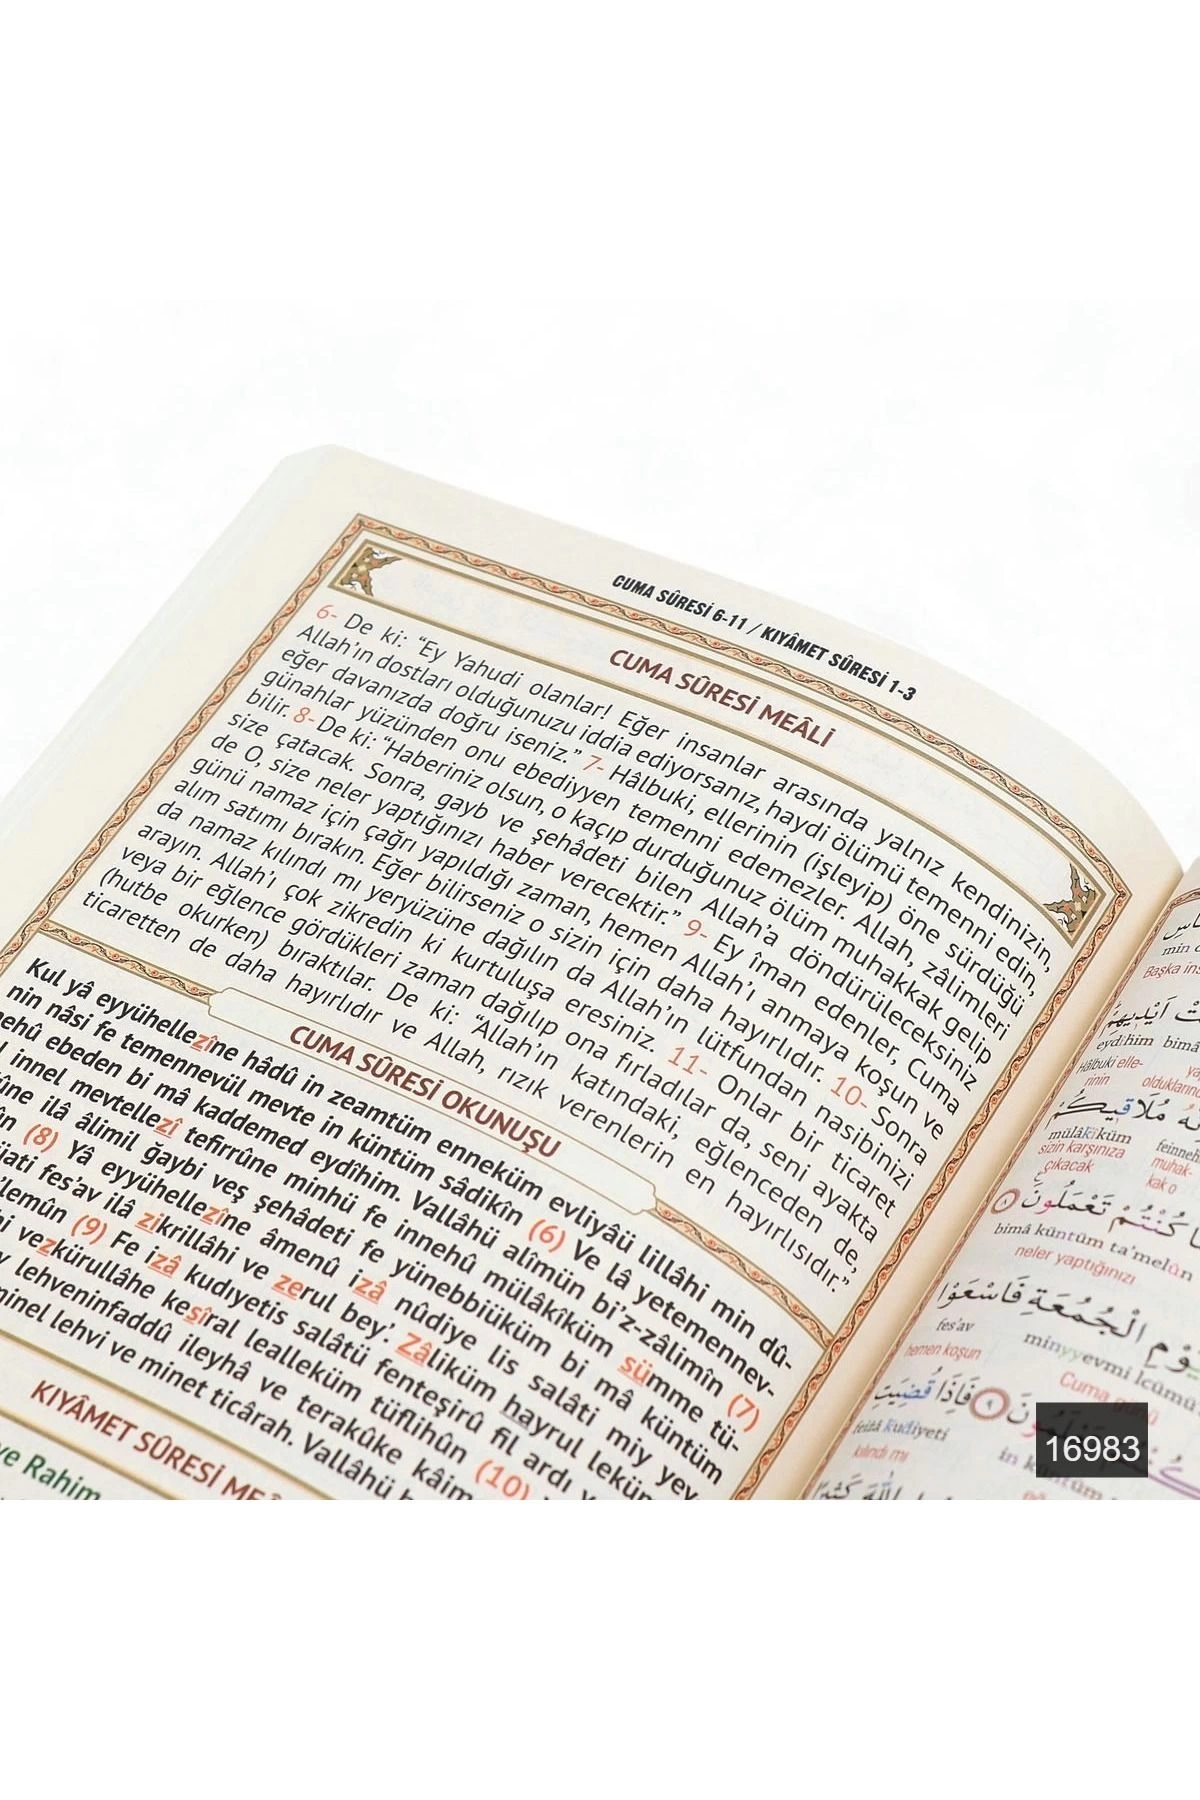 CUMA SÛRESİ 6-11 / KIYÂMET SÛRESİ 1-3
CUMA SÛRESİ MEÂLİ
6- De ki: “Ey Yahudi olanlar! Eğer insanlar arasında yalnız kendinizin,
Allah’ın dostları olduğunuzu iddia ediyorsanız, haydi ölümü temenni edin,
eğer davanızda doğru iseniz.” 7- Hâlbuki, ellerinin (işleyip) öne sürdüğü
günahlar yüzünden onu ebediyyen temenni edemezler. Allah, zâlimleri
bilir. 8- De ki: “Haberiniz olsun, o kaçıp durduğunuz ölüm muhakkak gelip
size çatacak. Sonra, gayb ve şehâdeti bilen Allah’a döndürüleceksiniz
de O, size neler yaptığınızı haber verecektir.” 9- Ey îman edenler, Cuma
günü namaz için çağrı yapıldığı zaman, hemen Allah’ı anmaya koşun ve
alım satımı bırakın. Eğer bilirseniz o sizin için daha hayırlıdır. 10- Sonra
da namaz kılındı mı yeryüzüne dağılın da Allah’ın lütfundan nasibinizi
arayın. Allah’ı çok zikredin ki kurtuluşa eresiniz. 11- Onlar bir ticaret
veya bir eğlence gördükleri zaman dağılıp ona fırladılar da, seni ayakta
(hutbe okurken) bıraktılar. De ki: “Allah’ın katındaki, eğlenceden de,
ticaretten de daha hayırlıdır ve Allah, rızık verenlerin en hayırlısıdır.”
CUMA SÛRESİ OKUNUŞU
Kul yâ eyyühellezîne hâdû in zeamtüm enneküm evliyâü lillâhi min dû-
nin nâsi fe temennevül mevte in küntüm sâdikîn (6) Ve lâ yetemennev-
nehû ebeden bi mâ kaddemed eydîhim. Vallâhü alîmün bi’z-zâlimîn (7)
innel mevtellezî tefirrûne minhü fe innehû mülâkîküm sümme tü-
ne ilâ âlimil ğaybi veş şehâdeti fe yünebbiüküm bi mâ küntüm
(8) Yâ eyyühellezîne âmenû izâ nûdiye lis salâti miy yev-
fes’av ilâ zikrillâhi ve zerul bey’. Zâliküm hayrul leküm
(9) Fe izâ kudıyetis salâtü fenteşirû fil ardı
vezkürullâhe kesîral lealleküm tüflihûn (10)
lehveninfaddû ileyhâ ve terakûke kâim
minel lehvi ve minet ticârah. Vallâhü
KIYÂMET SÛRESİ
ve Rahim
Başka
eydîhim bimâ
Hâlbuki elle-
rinin
مُلَاقِيكُمْ
mülâkîküm
sizin karşınıza
çıkacak
muhak-
kak o
كُنْتُمْ تَعْمَلُونَ
bimâ küntüm ta’melûn
neler yaptığınızı
الْجُمُعَةِ فَاسْعَوْا
fes’av
minyyevmi lcümü
hemen koşun
Cuma
فَاِذَا قُضِيَتِ
feizâ kudiyeti
kılındı mı
16983